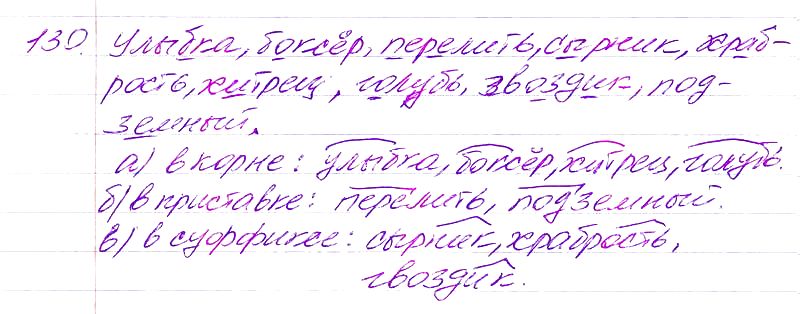 130. Улыбка, боксёр, перелить, сырник, храб-
рость, хитрец, голубь, гвоздик, под-
земный.
а) в корне: улыбка, боксёр, хитрец, голубь.
б) в приставке: перелить, подземный.
в) в суффиксе: сырник, храбрость,
гвоздик.